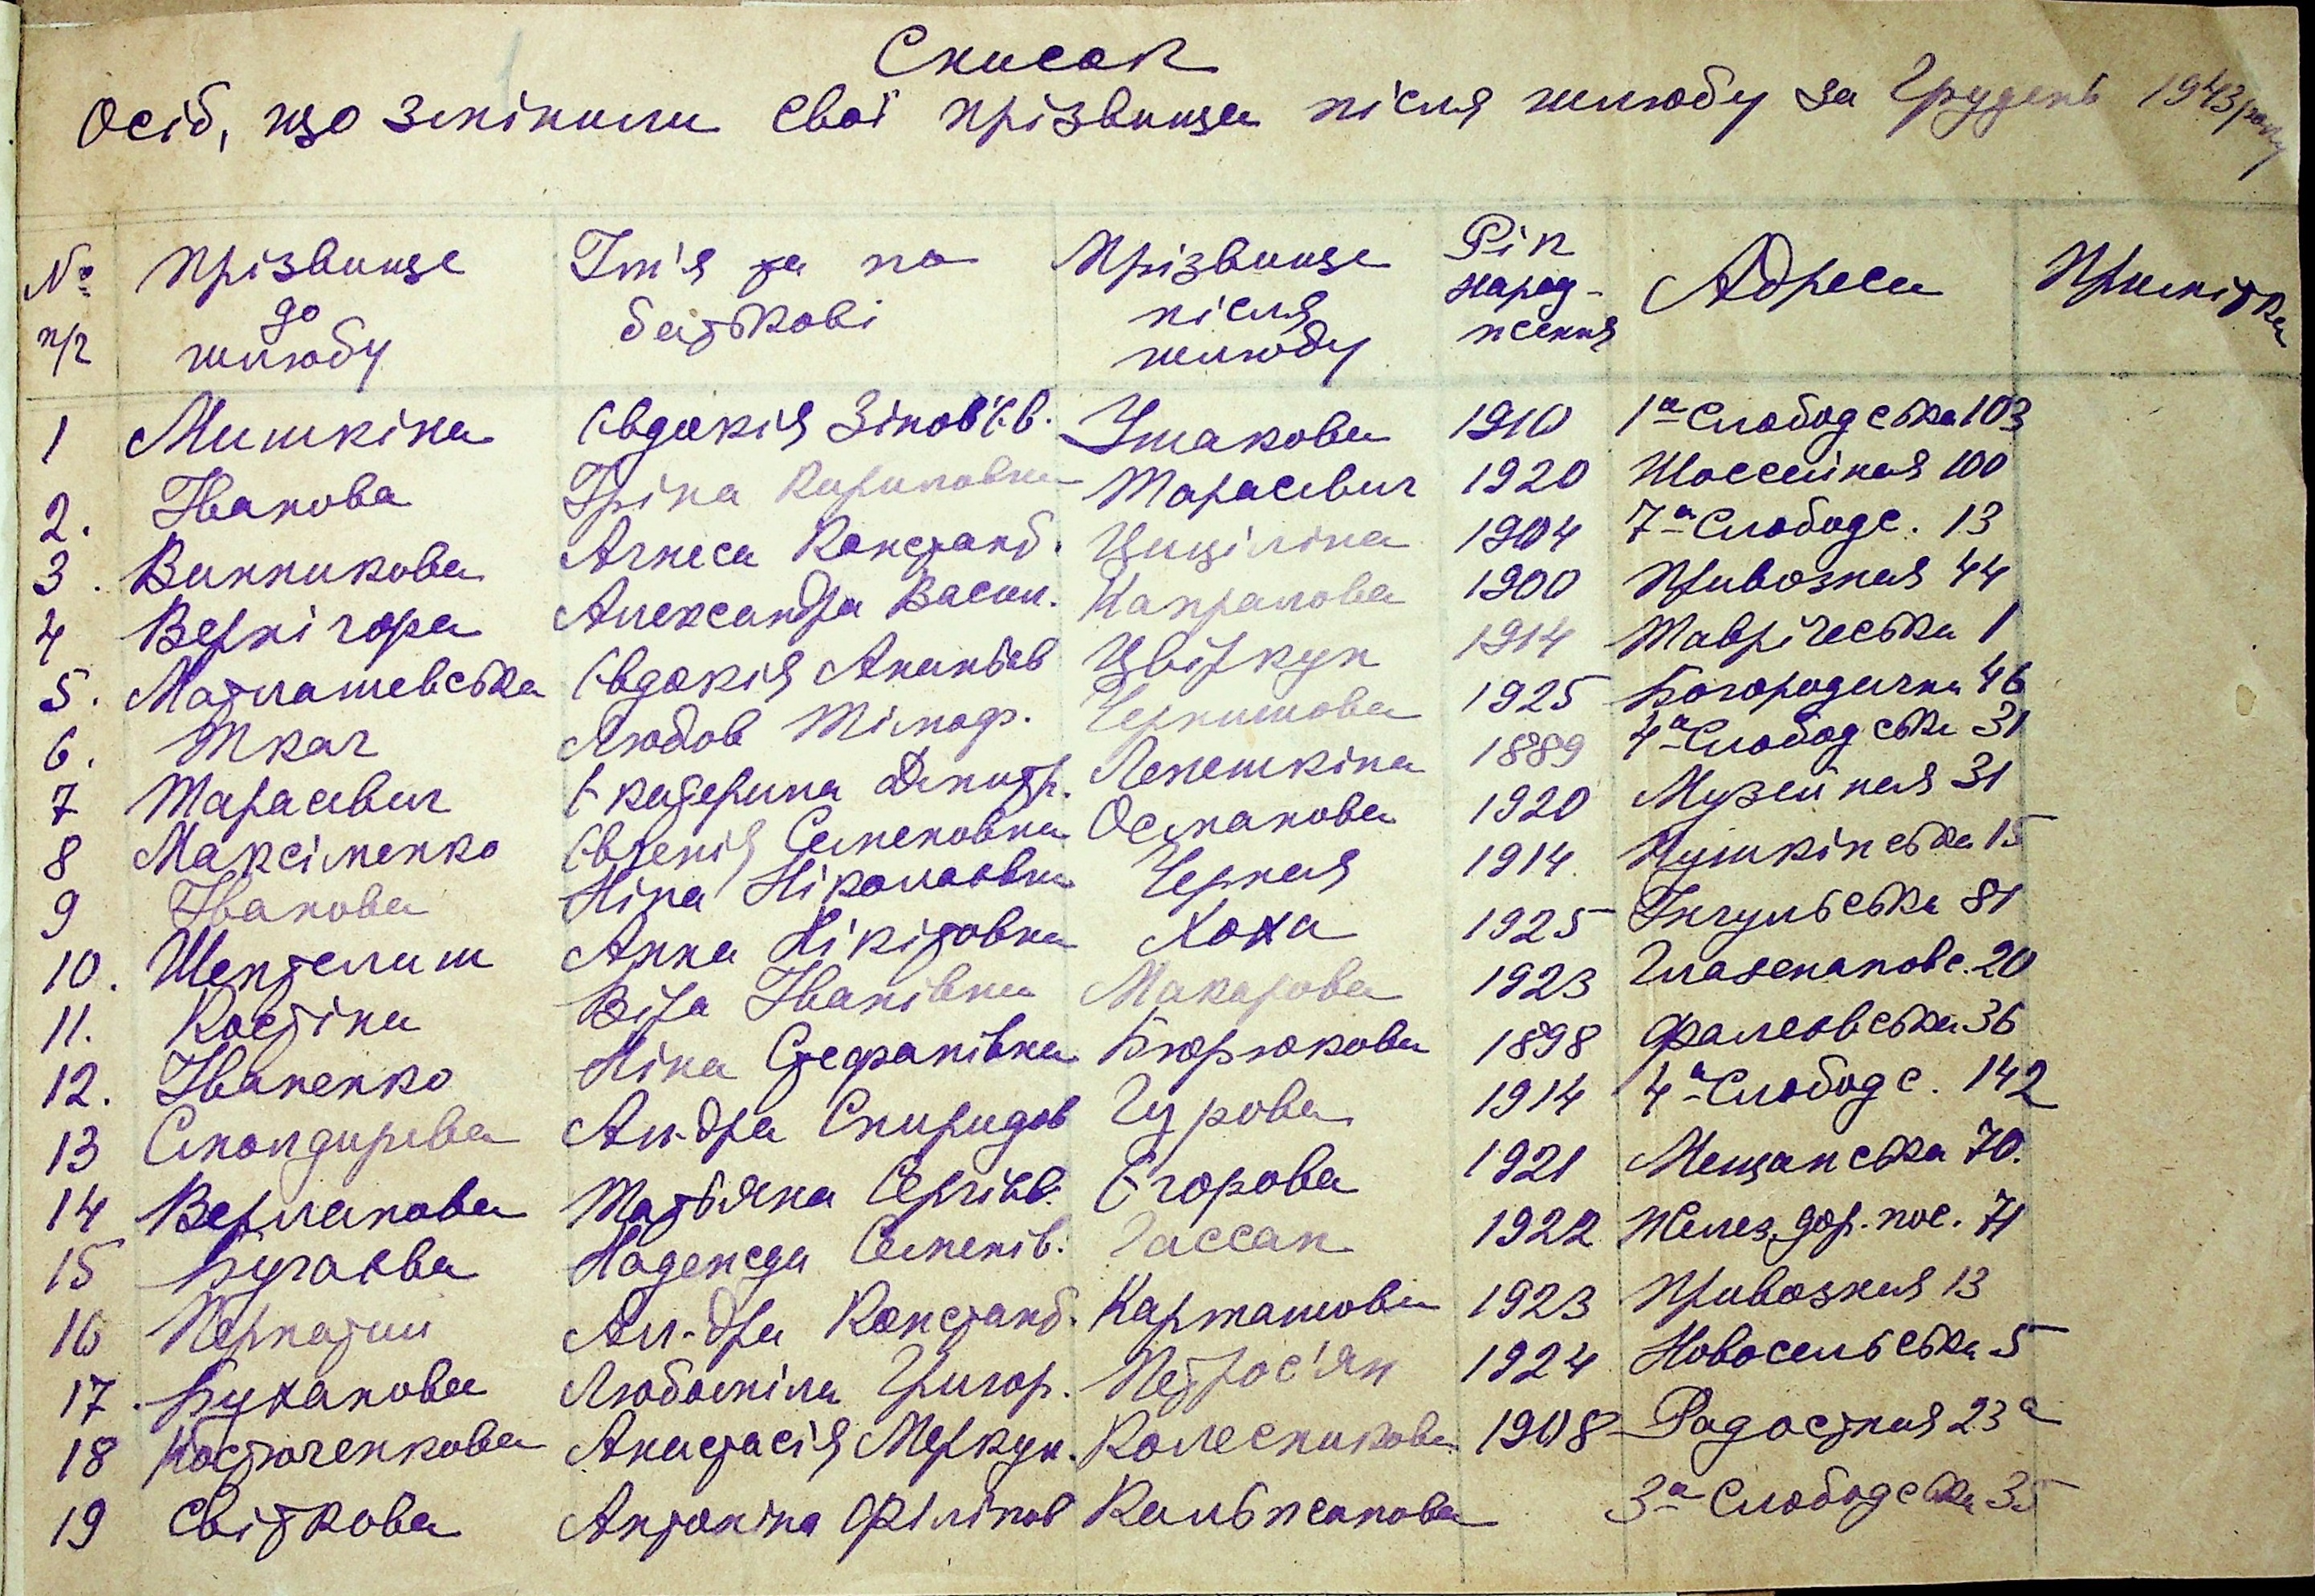 Список
Осіб, що змінили свої прізвища після шлюбу за Грудень 1943 року
№ п/п Прізвище до шлюбу Ім'я та по батькові Прізвище після шлюбу Рік народження Адреса Примітка
1 Мишкіна Євдокія Зінов'єв. Ушакова 1910 1а Слободська 103
2. Іванова Іріна Кириловна Тарасевич 1920 Шоссейная 100
3. Винникова Агнеса Констант. Цициліна 1904 7а Слободс. 13
4 Вернігора Александра Васил. Капралова 1900 Привозная 44
5. Матлашевська Євдокія Ананьєв Цвіркун 1914 Таврічеська 1
6. Ткач Любов Тімоф. Чернишова 1925 Богородична 46
7 Тарасевич Єкатерина Дмитр. Лепешкіна 1889 4а Слободська 31
8 Максіменко Євгенія Семеновна Османова 1920 Музейная 31
9 Іванова Ніна Ніколаєвна Черная 1914. Пушкінська 15
10. Шептелиш Анна Нікітовна Хоха 1925 Інгульська 81
11. Костіна Віра Іванівна Макарова 1923 Глазенаповс. 20
12. Іваненко Ніна Стефанівна Бюрюкова 1898 Фалєєвська 36
13 Смолдирєва Ал-дра Спиридов Гурова 1914 4а Слободс. 142
14 Верланова Татьяна Сергієв. Єгорова 1921 Мещанська 70.
15 Бугаєва Надежда Семенів. Гассан 1922 Желез. дор. пос. 71
16 Ал-дра Констант. Карташова 1923 Привозная 13
17. Буханова Любоміла Григор. Петрос'ян 1924 Новосельська 5
18 Костюченкова Анастасія Меркул. Колесникова 1908 Радостная 23а
19 Світкова Антоніна Філіпов Кальженкова 3а Слободська 35